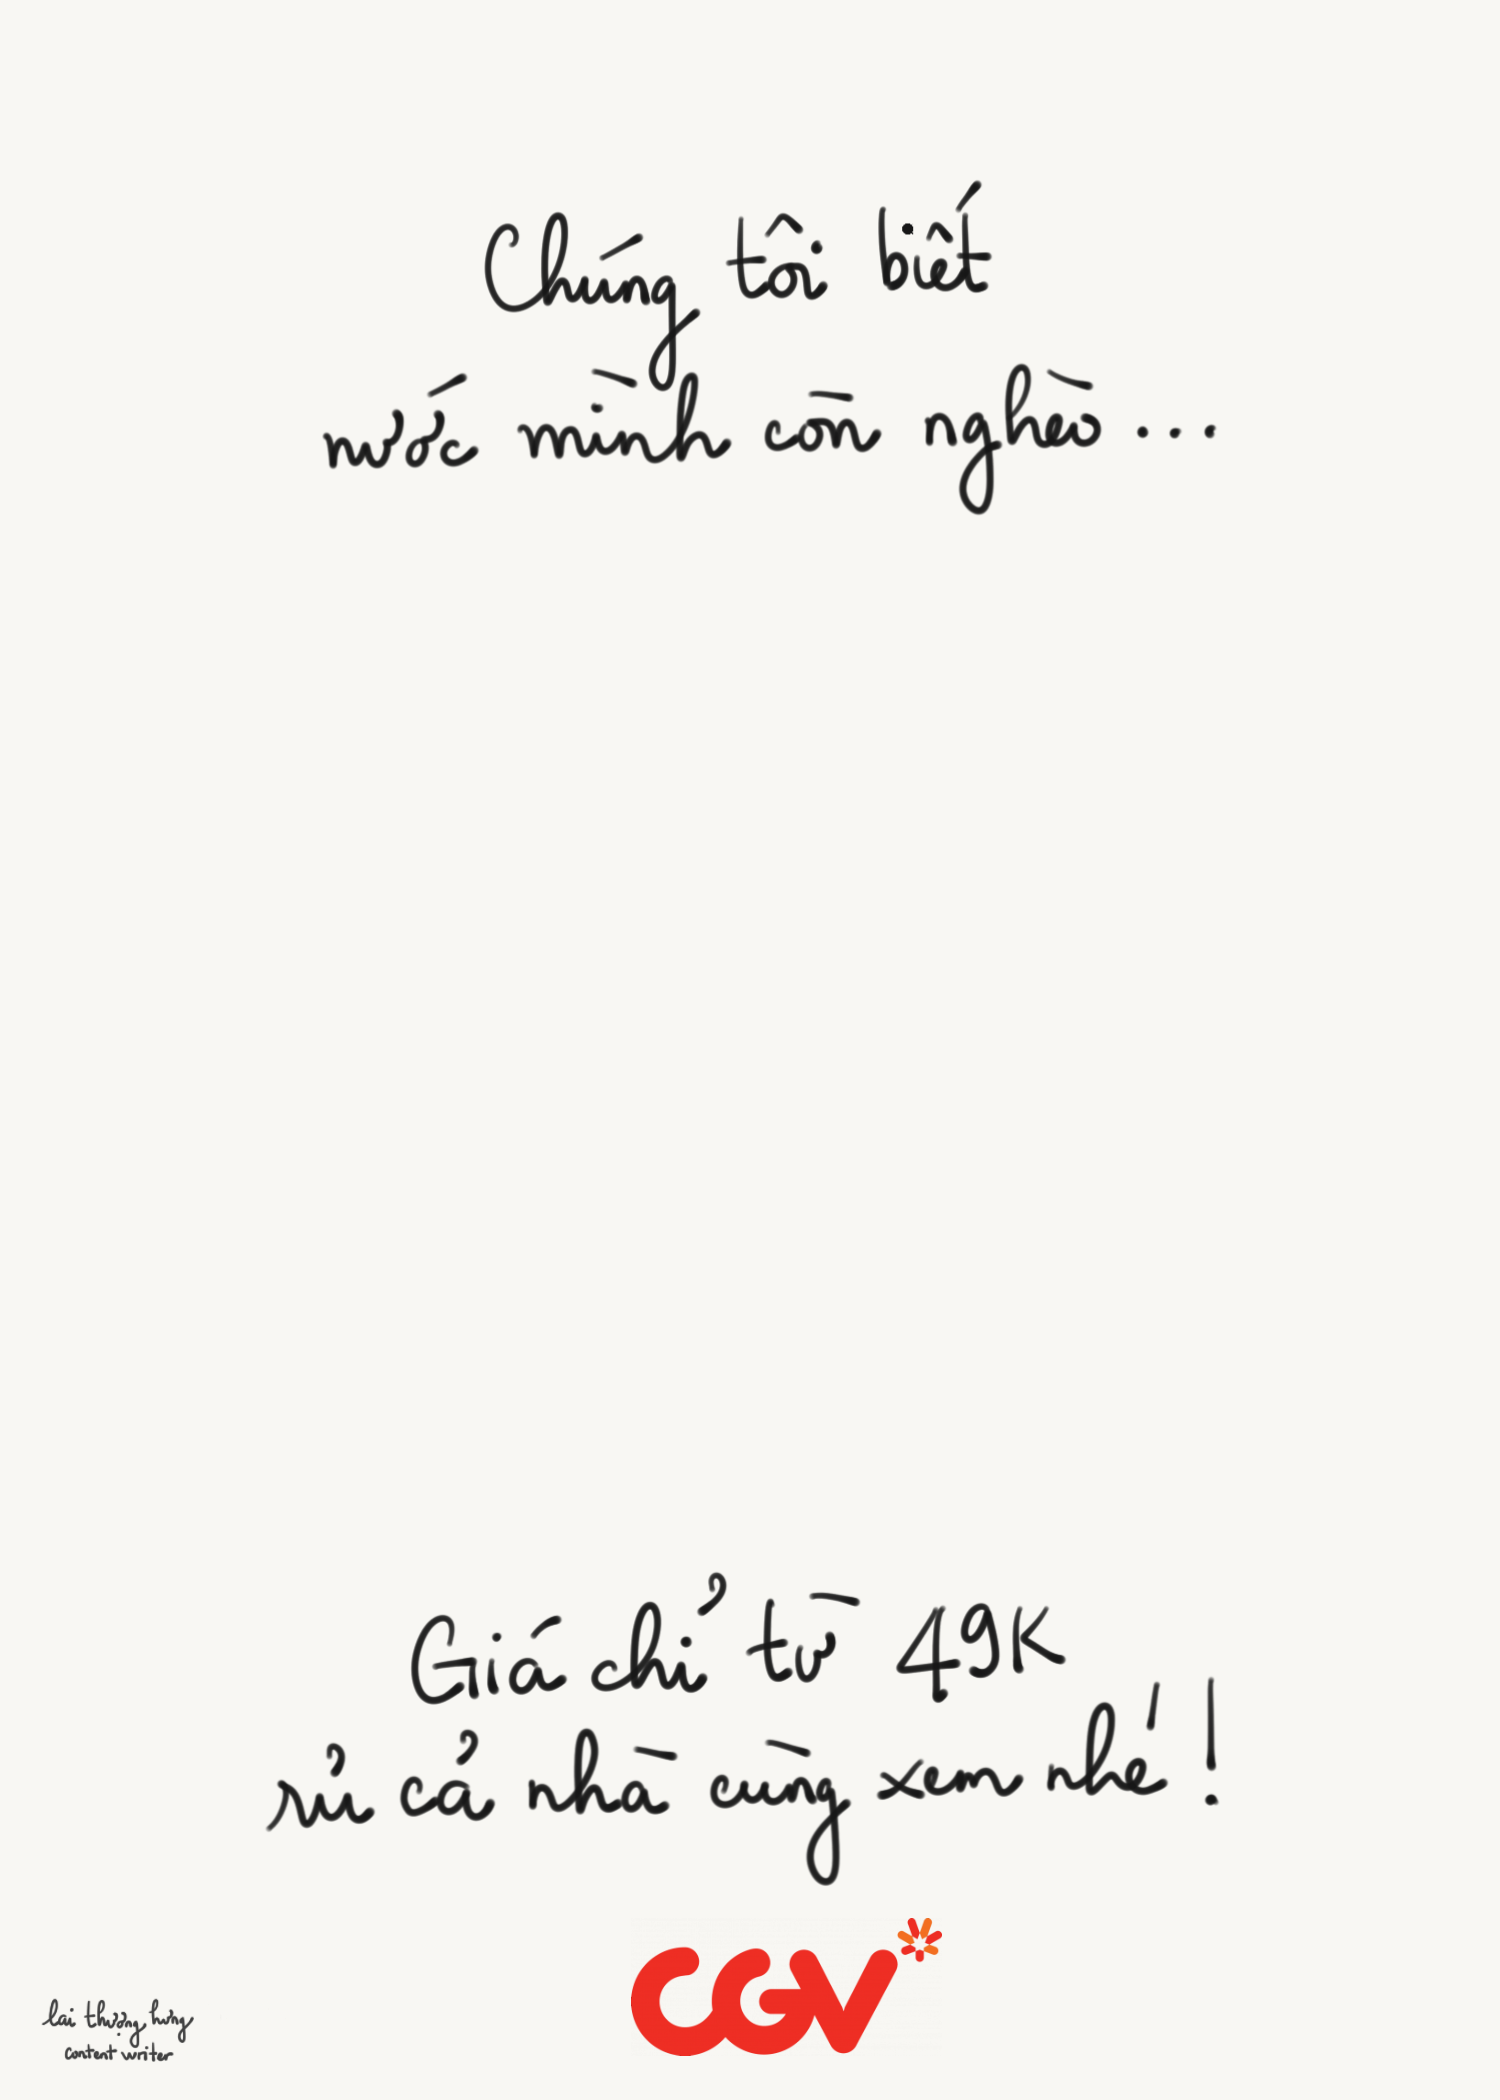 Chúng tôi biết
nước mình còn nghèo...
Giá chỉ từ 49K
rủ cả nhà cùng xem nhé!
CGV
lai thượng hưng
content writer